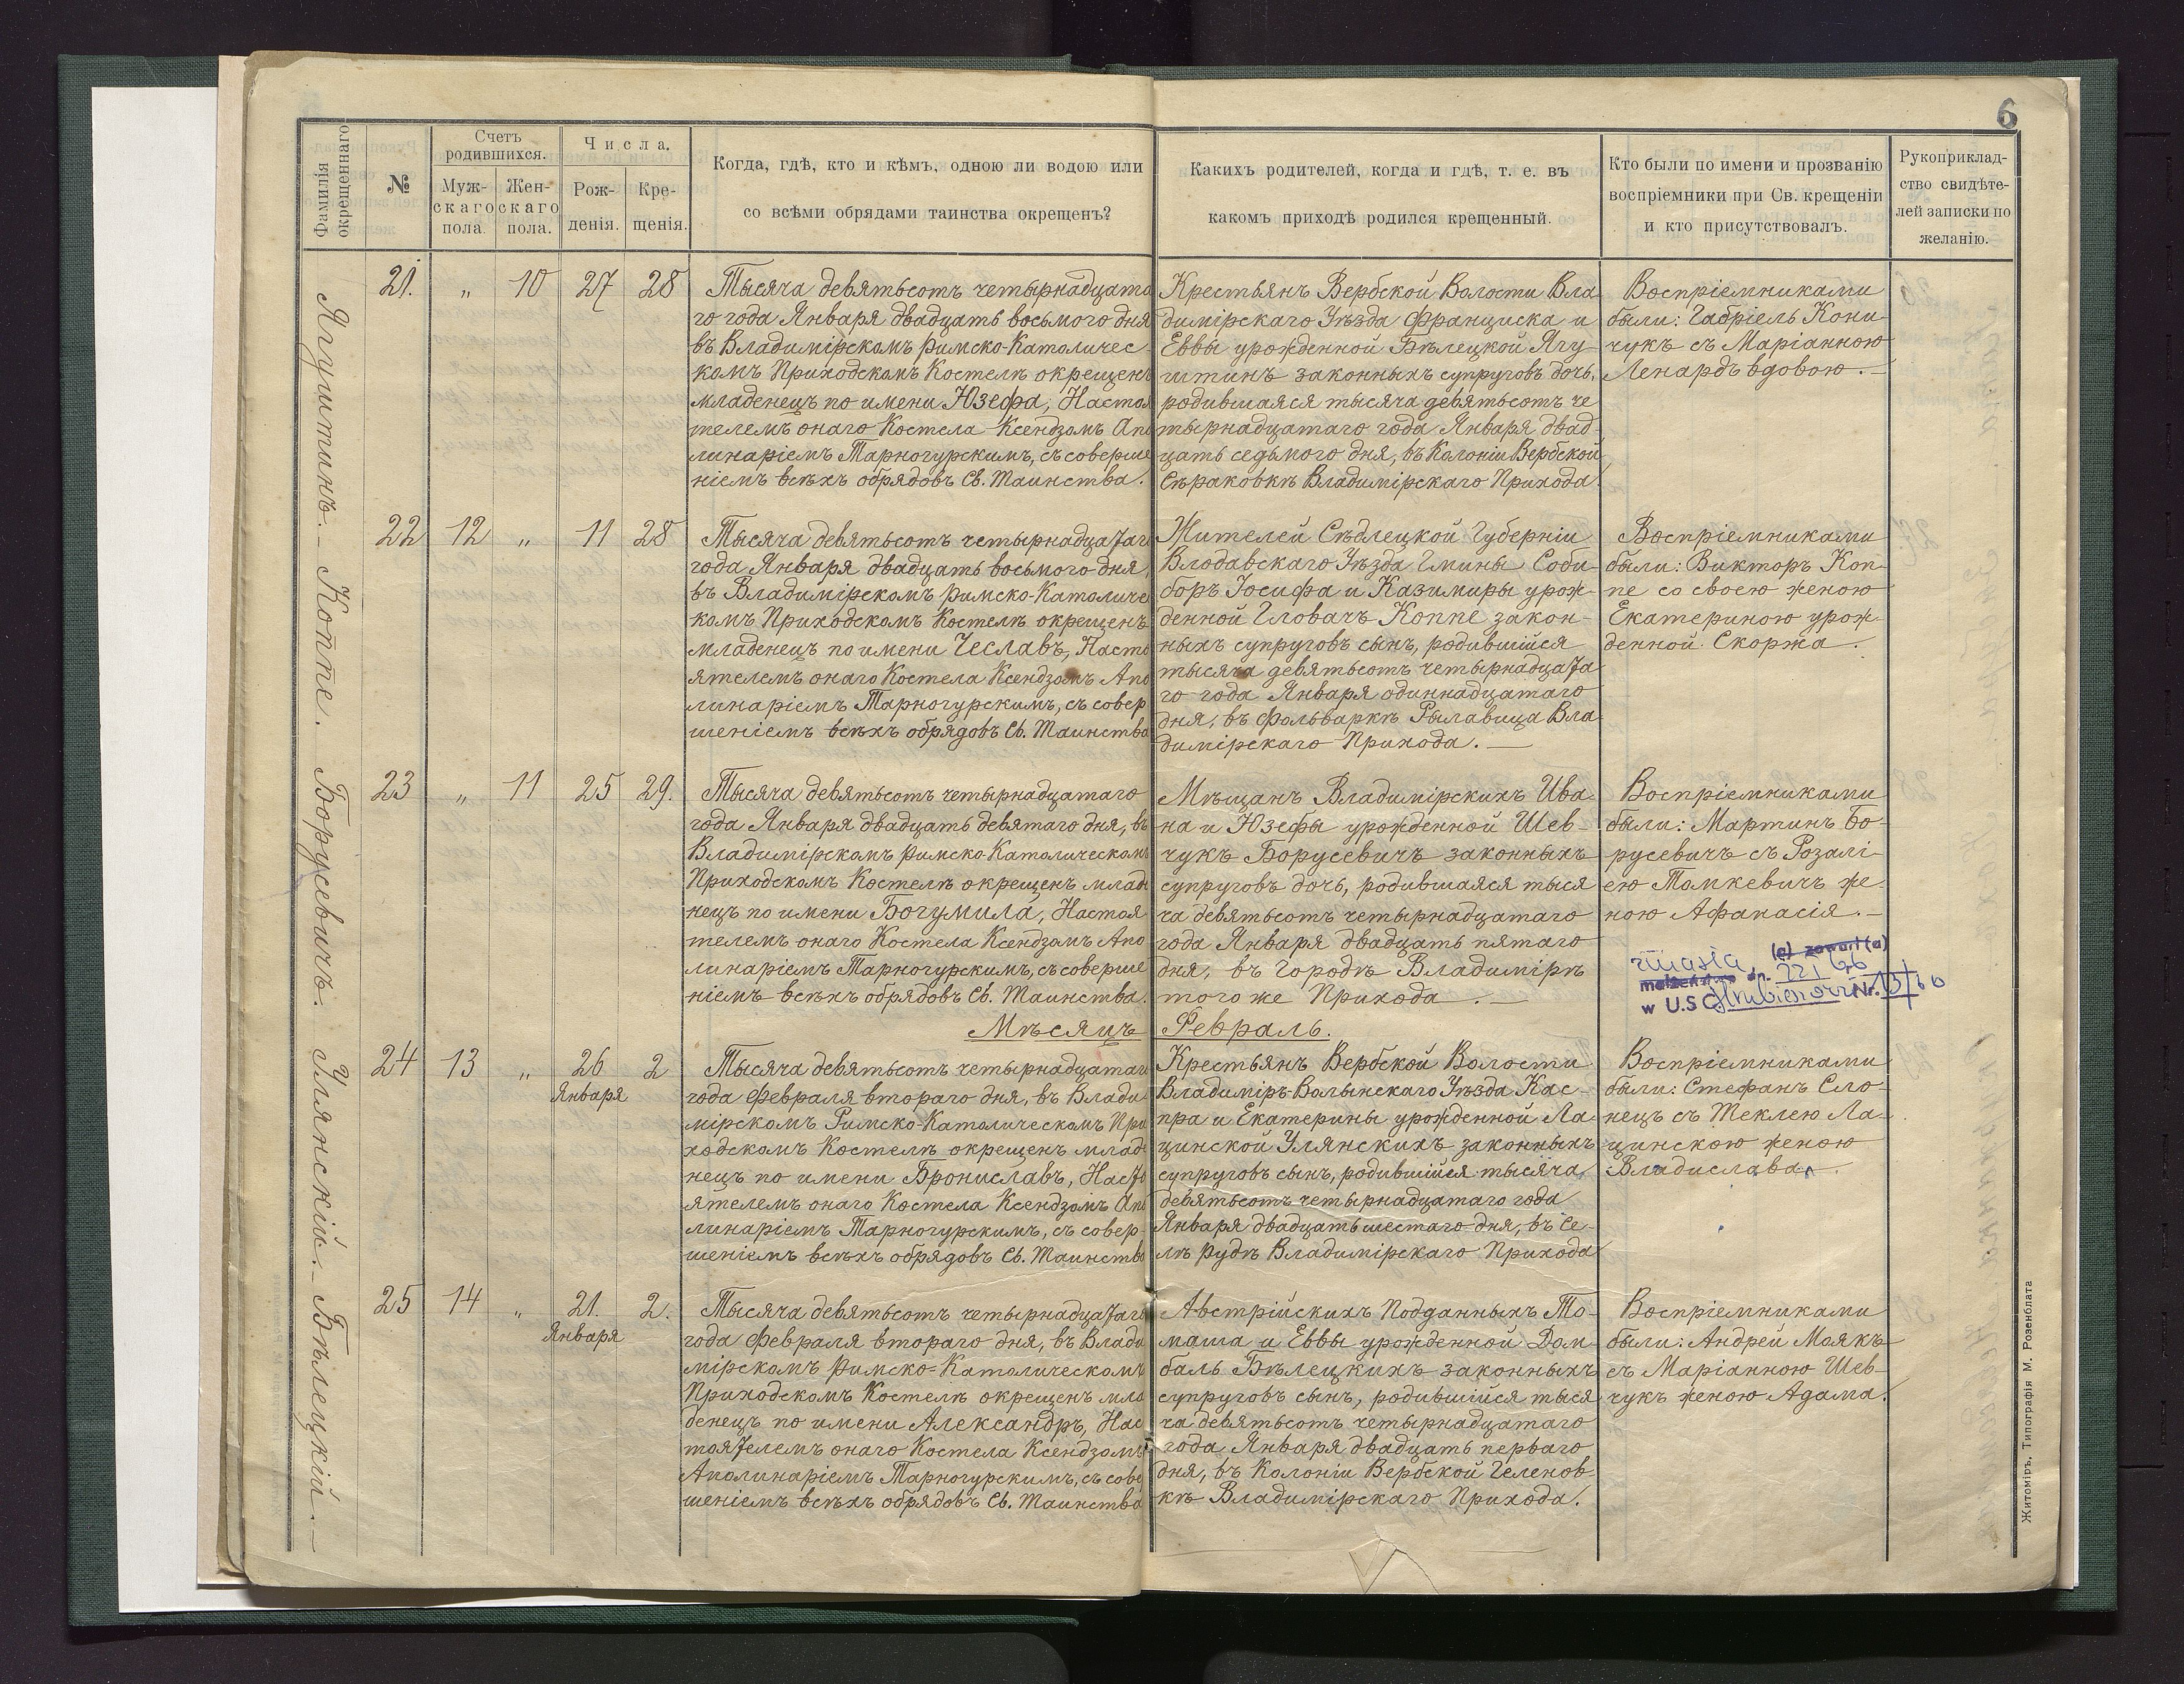 6
Фамилія окрещеннаго
№
Счетъ родившихся.
Мужскаго пола.
Женскаго пола.
Числа.
Рожденія.
Крещенія.
Когда, гдѣ, кто и кѣмъ, одною ли водою или
со всѣми обрядами таинства окрещенъ?
Какихъ родителей, когда и гдѣ, т. е. въ
какомъ приходѣ родился крещенный.
Кто были по имени и прозванію
воспріемники при Св. крещеніи
и кто присутствовалъ.
Рукоприклад-
ство свидѣте-
лей записки по
желанію.
Ягуштинъ.
21. „ 10 27 28
Тысяча девятьсотъ четырнадцата
го года Января двадцать восьмого дня
въ Владимірскомъ Римско-Католичес-
комъ Приходскомъ Костелѣ окрещенъ
младенецъ по имени Юзефа, Настоя
телемъ онаго Костела Ксендзомъ Апо
линаріемъ Тарногурскимъ, съ соверше
ніемъ всѣхъ обрядовъ Св. Таинства.
Крестьянъ Вербской Волости Вла
димірскаго Уѣзда Франциска и
Еввы урожденной Бѣлецкой Ягу-
штинъ законныхъ супруговъ дочь,
родившаяся тысяча девятьсотъ че
тырнадцатаго года Января двад-
цать седьмого дня, въ Колоніи Вербской
Сѣраковкѣ Владимірскаго Прихода.
Воспріемниками
были: Габріель Кони-
чукъ съ Маріанною
Ленардъ вдовою.
Коппе.
22 12 „ 11 28
Тысяча девятьсотъ четырнадцатаго
года Января двадцать восьмого дня,
въ Владимірскомъ Римско-Католиче
комъ Приходскомъ Костелѣ окрещенъ
младенецъ по имени Чеславъ, Насто
ятелемъ онаго Костела Ксендзомъ Апо
линаріемъ Тарногурскимъ, съ совер
шеніемъ всѣхъ обрядовъ Св. Таинства
Жителей Сѣдлецкой Губерніи
Влодавскаго Уѣзда Гмины Соби-
боръ Іосифа и Казимиры урож-
денной Гловачъ Коппе закон-
ныхъ супруговъ сынъ, родившійся
тысяча девятьсотъ четырнадцата
го года Января одиннадцатаго
дня, въ Фольваркѣ Рылавица Вла
димірскаго Прихода.
Воспріемниками
были: Викторъ Коп-
пе со своею женою
Екатериною урож-
денной Скоржа.
Борусевичъ.
23 „ 11 25 29.
Тысяча девятьсотъ четырнадцатаго
года Января двадцать девятаго дня, въ
Владимірскомъ Римско-Католическомъ
Приходскомъ Костелѣ окрещенъ младе
нецъ по имени Богумила, Настоя
телемъ онаго Костела Ксендзомъ Апо
линаріемъ Тарногурскимъ, съ соверше
ніемъ всѣхъ обрядовъ Св. Таинства.
Мѣщанъ Владимірскихъ Ива-
на и Юзефы урожденной Шев-
чукъ Борусевичъ законныхъ
супруговъ дочь, родившаяся тыся
ча девятьсотъ четырнадцатаго
года Января двадцать пятаго
дня, въ Городѣ Владимірѣ
того же Прихода.
Воспріемниками
были: Мартинъ Бо-
русевичъ съ Розалі-
ею Томкевичъ же-
ною Афанасія.
(e) zawarł(a)
małżeństwo dn.
w U.S.C. Nr. 13/66
Мѣсяцъ Февраль.
Улянскій.
24 13 „ 26 Января 2
Тысяча девятьсотъ четырнадцатаго
года Февраля второго дня, въ Влади-
мірскомъ Римско-Католическомъ При
ходскомъ Костелѣ окрещенъ младе
нецъ по имени Брониславъ, Насто
ятелемъ онаго Костела Ксендзомъ Апо
линаріемъ Тарногурскимъ, съ совер-
шеніемъ всѣхъ обрядовъ Св. Таинства
Крестьянъ Вербской Волости
Владиміръ-Волынскаго Уѣзда Кас-
пра и Екатерины урожденной Ла-
цинской Улянскихъ законныхъ
супруговъ сынъ, родившійся тысяча
девятьсотъ четырнадцатаго года
Января двадцать шестаго дня, въ Се-
лѣ Рудѣ Владимірскаго Прихода
Воспріемниками
были: Стефанъ Сло-
нецъ съ Теклею Ла-
цинскою женою
Владислава.
Бѣлецкій.
25 14 „ 21. Января 2.
Тысяча девятьсотъ четырнадцатаго
года Февраля второго дня, въ Влади
мірскомъ Римско-Католическомъ
Приходскомъ Костелѣ окрещенъ мла
денецъ по имени Александръ, Нас
тоятелемъ онаго Костела Ксендзомъ
Аполинаріемъ Тарногурскимъ, съ сове
шеніемъ всѣхъ обрядовъ Св. Таинства
Австрійскихъ Подданныхъ То-
маша и Еввы урожденной Дом-
баль Бѣлецкихъ законныхъ
супруговъ сынъ, родившійся тыся
ча девятьсотъ четырнадцатаго
года Января двадцать перваго
дня, въ Колоніи Вербской Геленов-
кѣ Владимірскаго Прихода.
Воспріемниками
были: Андрей Моякъ
съ Маріанною Шев-
чукъ женою Адама.
Житоміръ, Типографія М. Розенблата